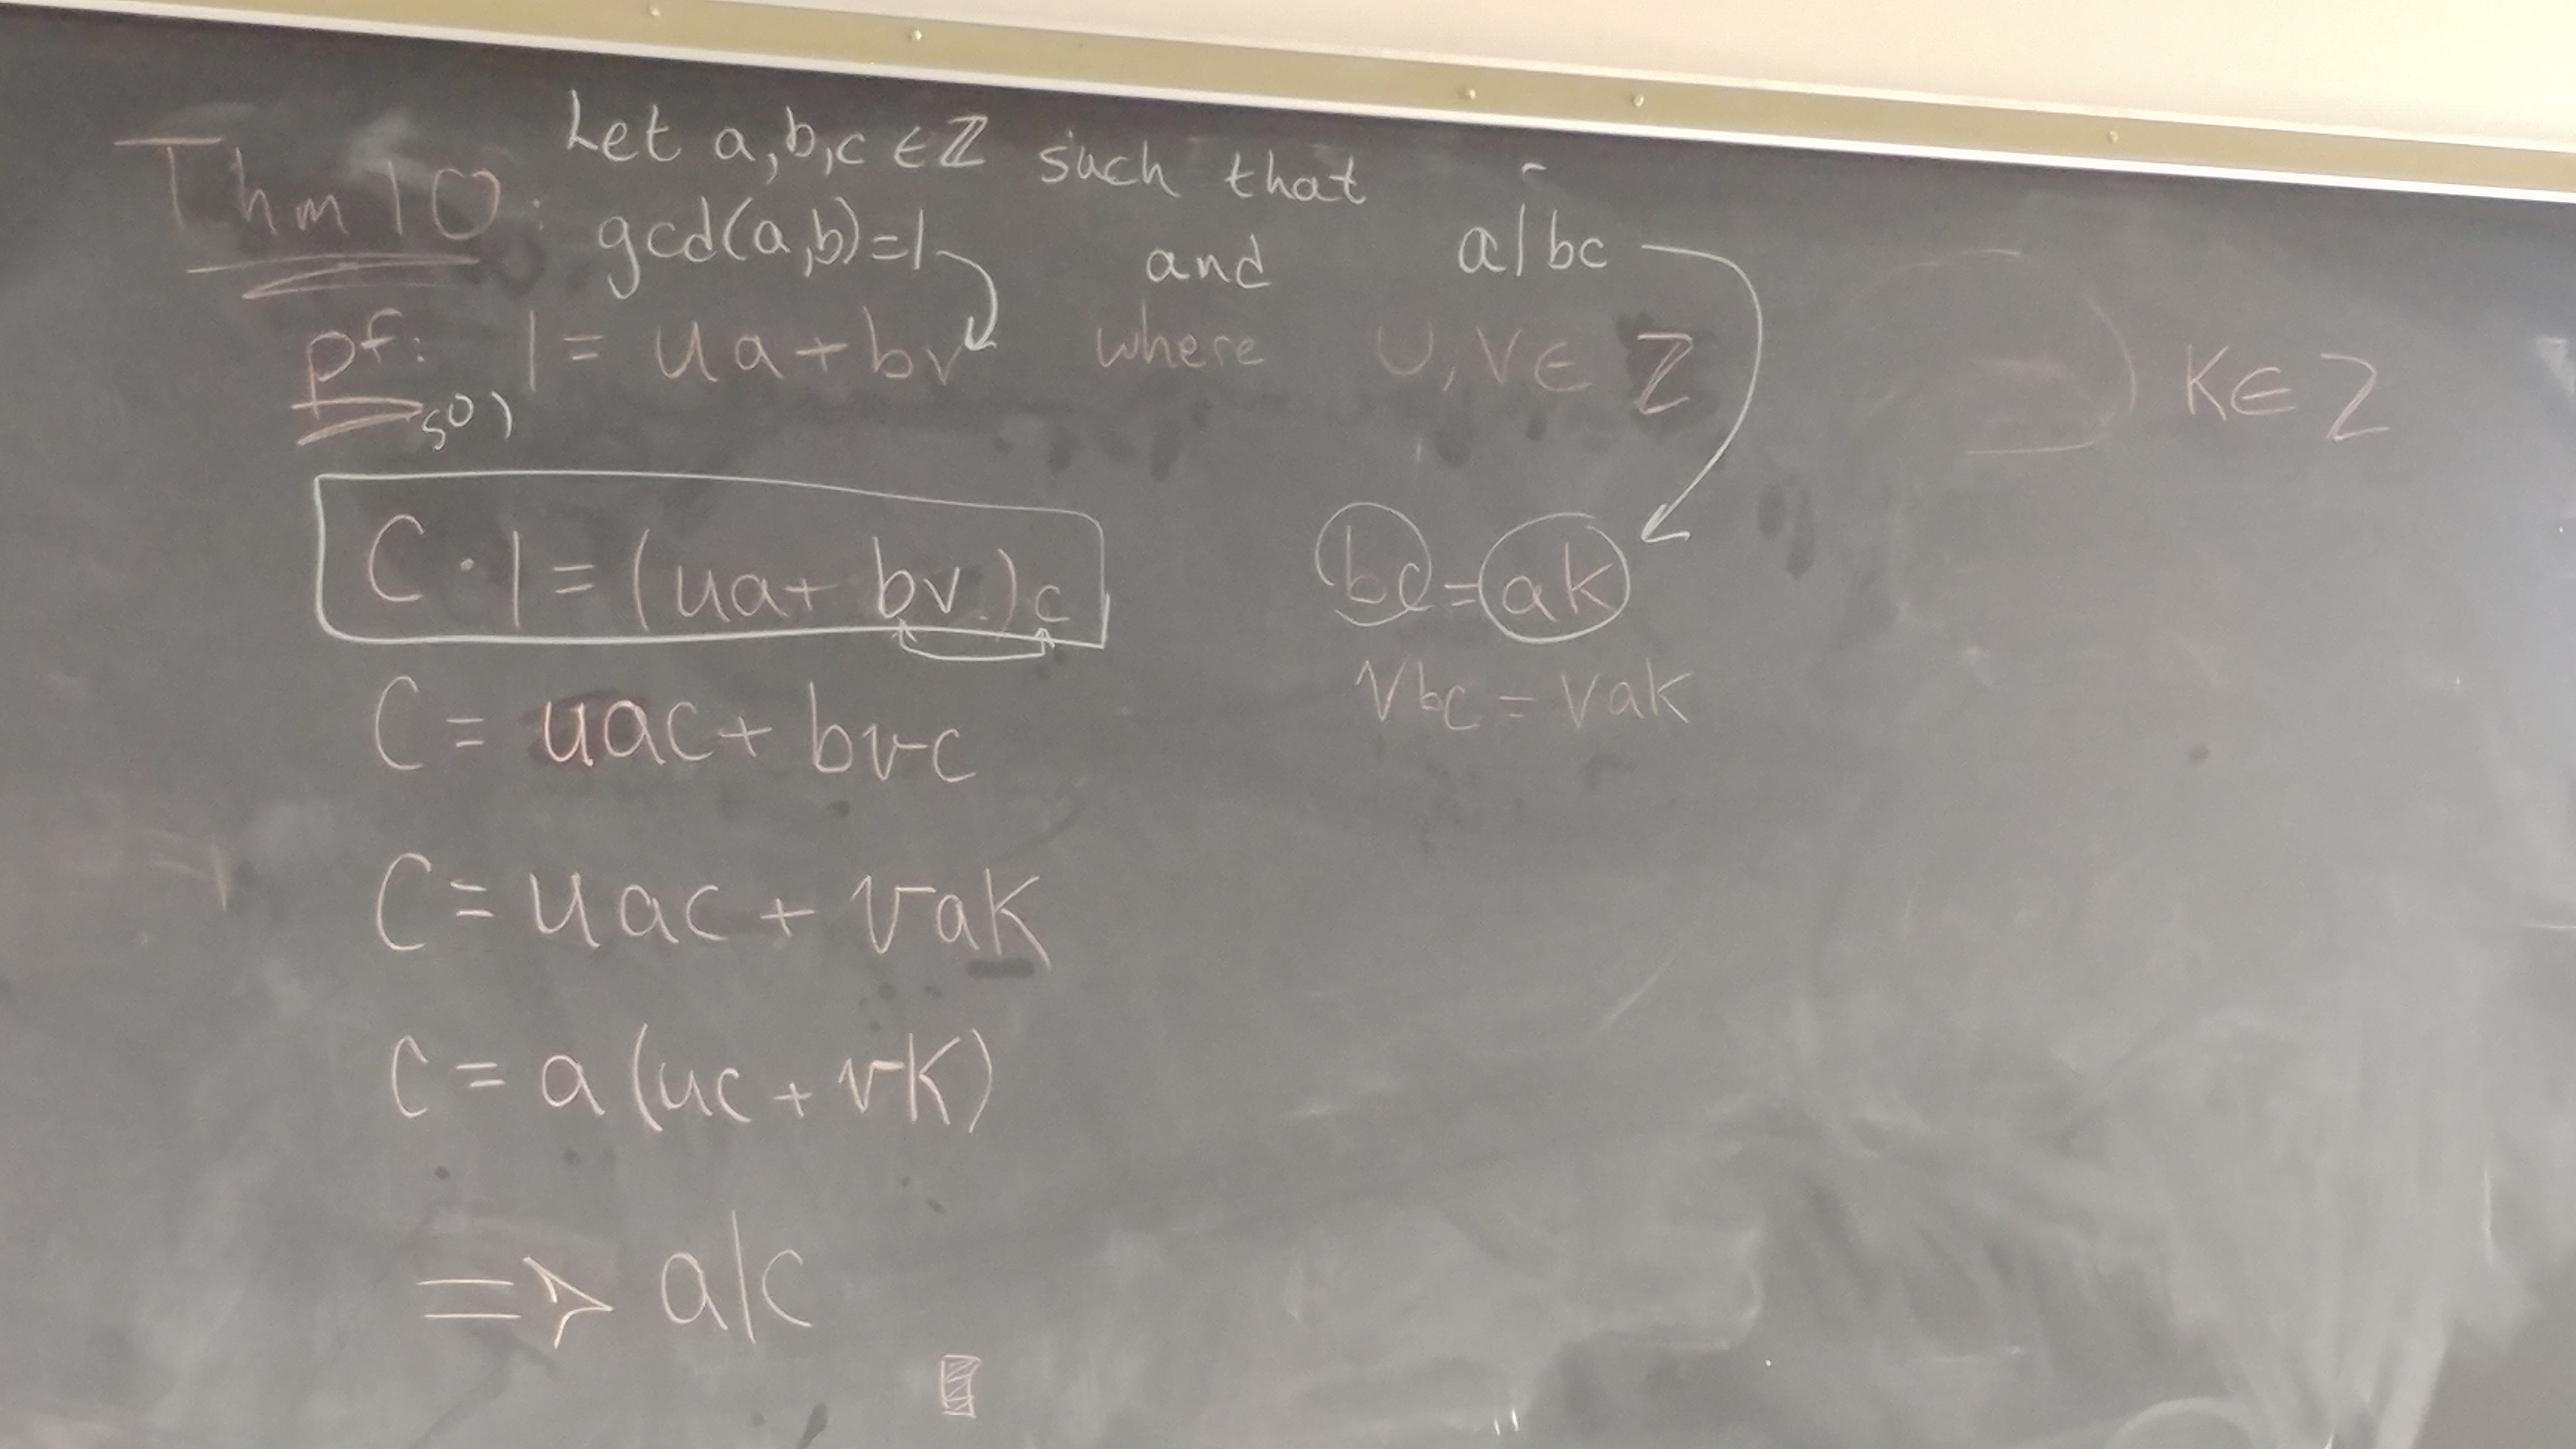 Thm 10: Let a,b,c ∈ ℤ such that
gcd(a,b)=1 and a|bc
pf: 1 = ua+bv where u,v ∈ ℤ K∈ℤ
so,
C·1=(ua+bv)c bc=ak
C= uac+bvc vbc=vak
C=uac+vak
C=a(uc+vK)
⇒ a|c